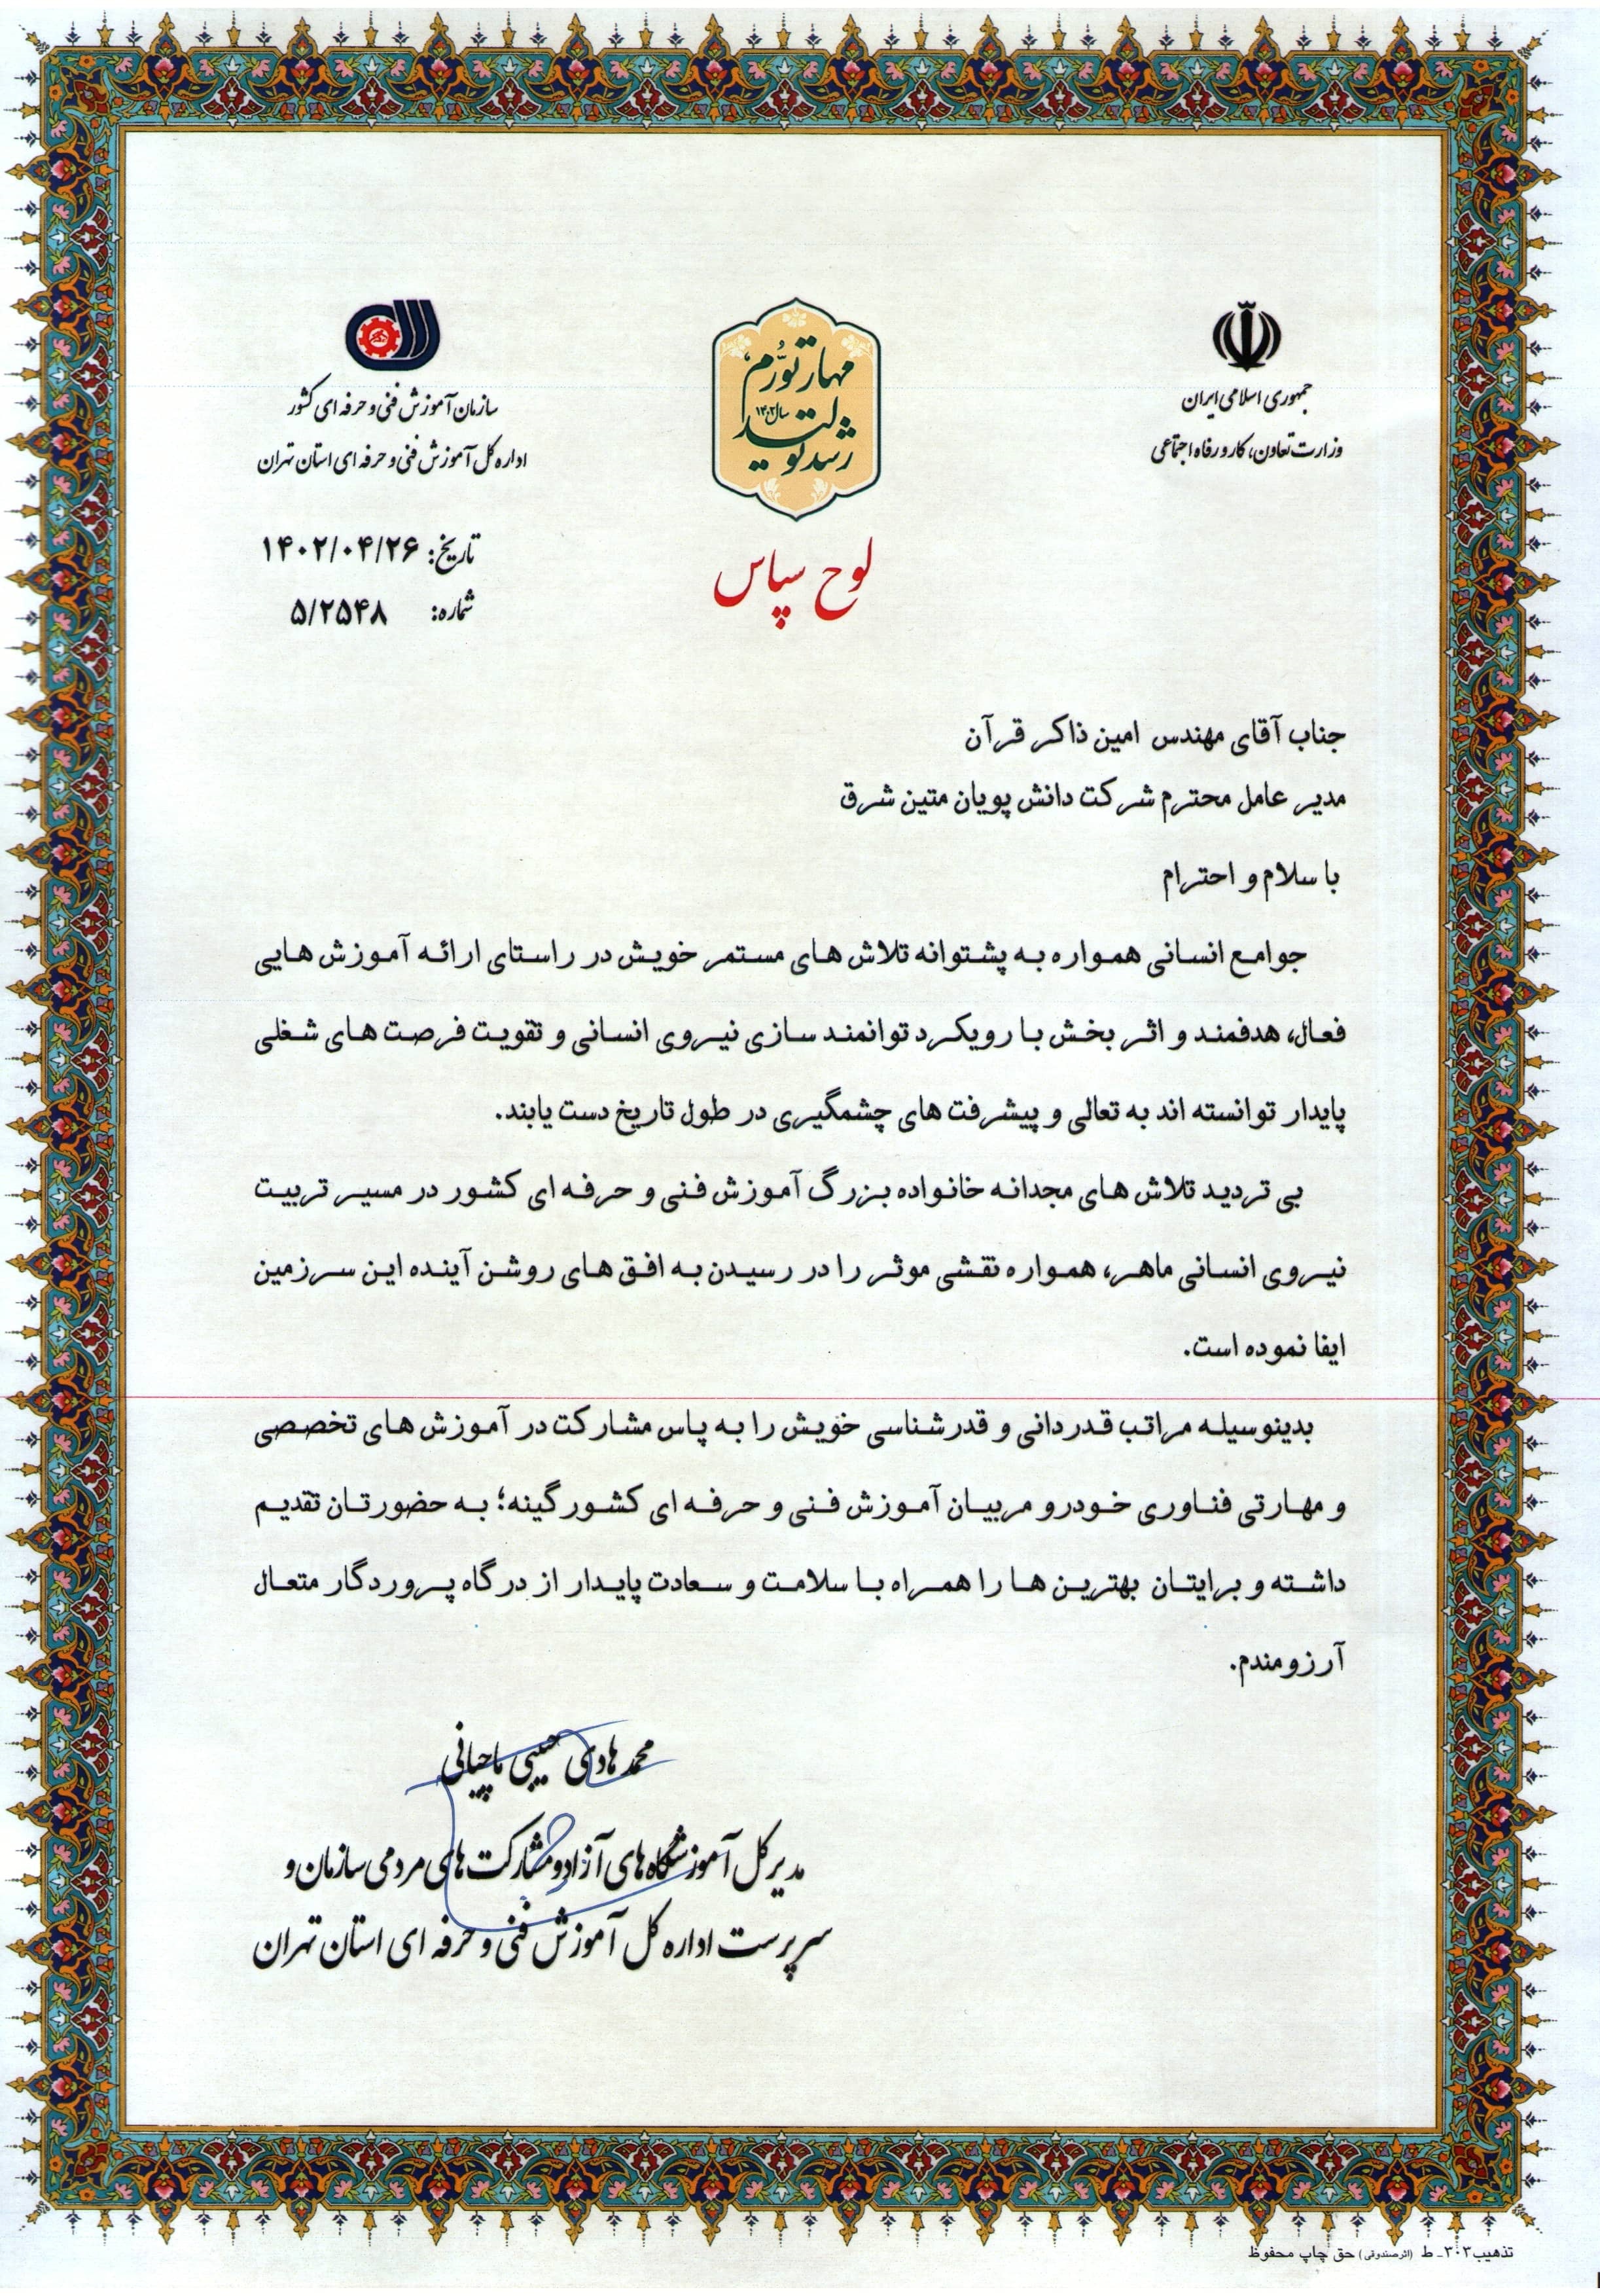 جمهوری اسلامی ایران
وزارت تعاون، کار و رفاه اجتماعی
مهار تورُّم،
رشد تولید
سال ۱۴۰۲
سازمان آموزش فنی و حرفه ای کشور
اداره کل آموزش فنی و حرفه ای استان تهران
تاریخ: ۱۴۰۲/۰۴/۲۶
شماره: ۵/۲۵۴۸
لوح سپاس
جناب آقای مهندس امین ذاکر قرآن
مدیر عامل محترم شرکت دانش پویان متین شرق
با سلام و احترام
جوامع انسانی همواره به پشتوانه تلاش های مستمر خویش در راستای ارائه آموزش هایی
فعال، هدفمند و اثر بخش با رویکرد توانمند سازی نیروی انسانی و تقویت فرصت های شغلی
پایدار توانسته اند به تعالی و پیشرفت های چشمگیری در طول تاریخ دست یابند.
بی تردید تلاش های مجدانه خانواده بزرگ آموزش فنی و حرفه ای کشور در مسیر تربیت
نیروی انسانی ماهر، همواره نقشی موثر را در رسیدن به افق های روشن آینده این سرزمین
ایفا نموده است.
بدینوسیله مراتب قدردانی و قدرشناسی خویش را به پاس مشارکت در آموزش های تخصصی
و مهارتی فناوری خودرو مربیان آموزش فنی و حرفه ای کشور گینه؛ به حضورتان تقدیم
داشته و برایتان بهترین ها را همراه با سلامت و سعادت پایدار از درگاه پروردگار متعال
آرزومندم.
محمد هادی حبیبی ماچیانی
مدیر کل آموزشگاه های آزاد و مشارکت های مردمی سازمان و
سرپرست اداره کل آموزش فنی و حرفه ای استان تهران
تذهیب ۳۰۳ـ ط (اثر صندوقی) حق چاپ محفوظ